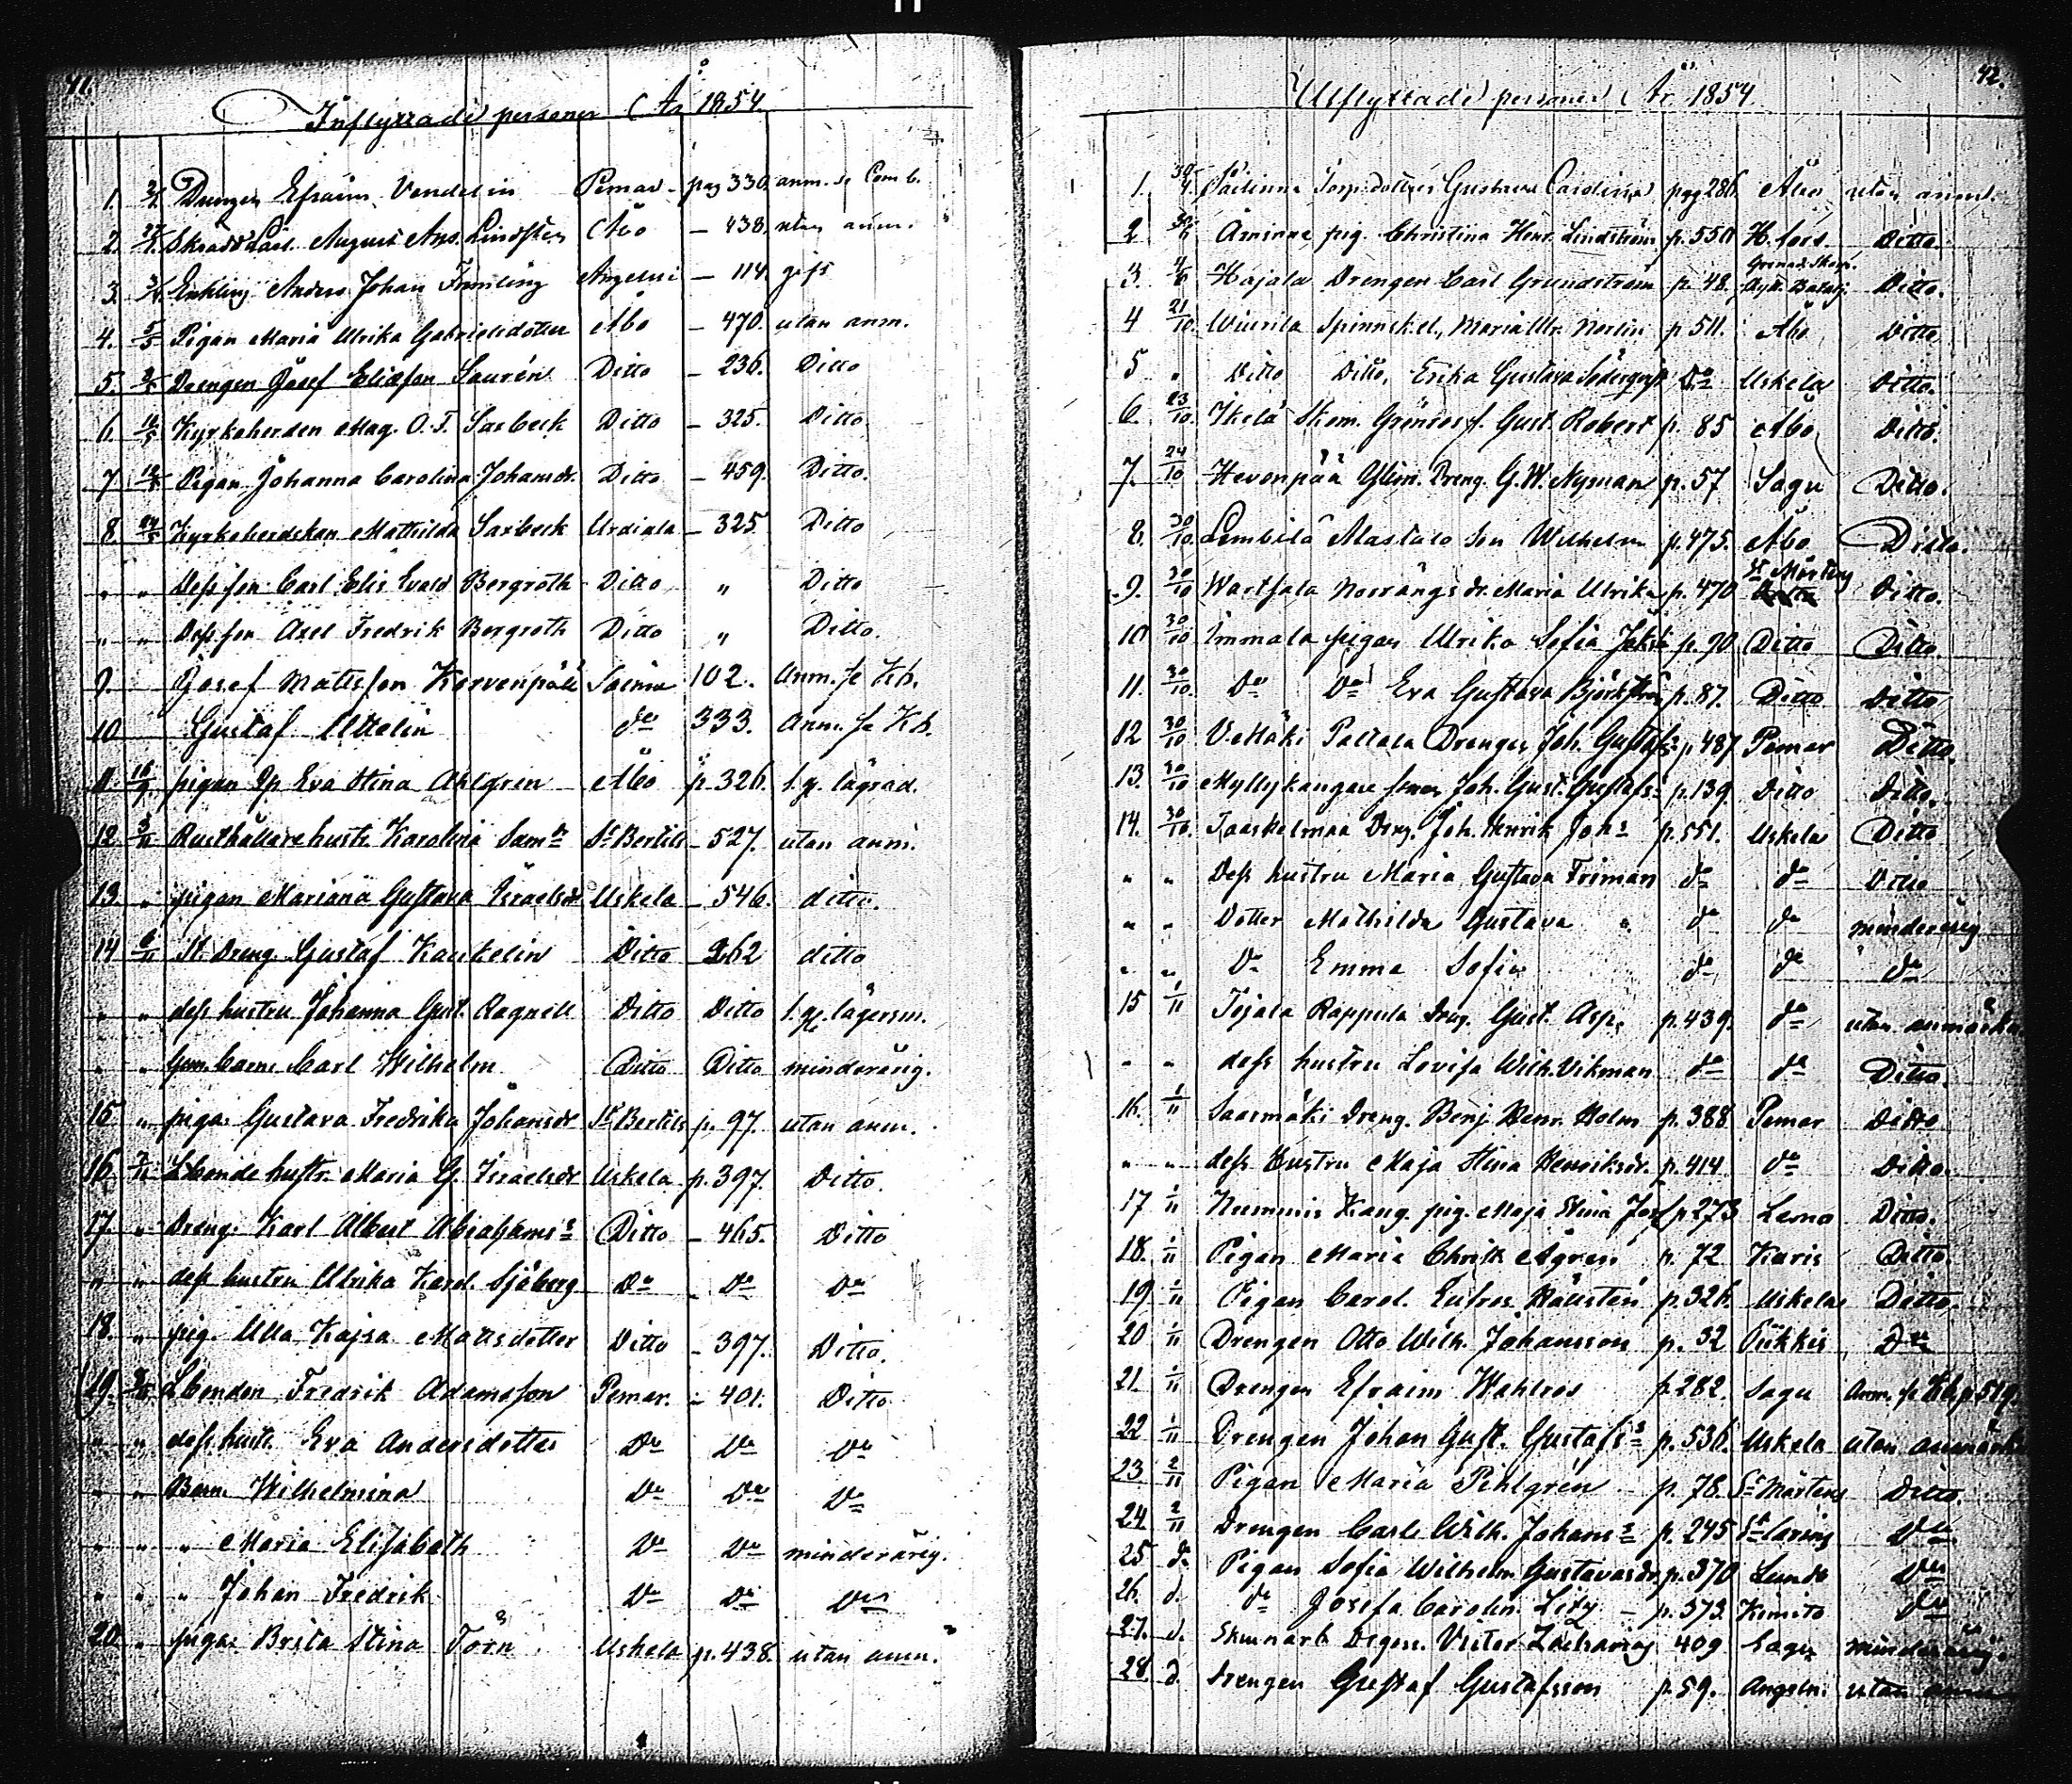 41.
Inflyttade personer År 1854
1. Drengen Efraim Vendelin Pemar - pag 330. anm. se Com b.
2. Skradd Lärl. August And. Lindsten Åbo - 438. utan anm.
3. Enkling Anders Johan Framling Angelni - 114. gift
4. 5/5 Pigan Maria Ulrika Gabrielsdotter Åbo - 470. utan anm.
5. Drengen Josef Eliasson Saurén Ditto - 236. Ditto
6. Kyrkoherden Mag. O. F. Saxbeck Ditto - 325. Ditto.
7. Pigan Johanna Carolina Johansdr. Ditto - 459. Ditto.
8. Kyrkoherdskan Mathilda Saxbeck Urdiala - 325 Ditto
" " Dess son Carl Elis Evald Bergroth - Ditto " Ditto
" " Dess son Axel Fredrik Bergroth Ditto " Ditto.
9. Josef Mattsson Korvenpää 102. Anm. se Kb.
10 Gustaf Uttelin do 333. Anm. se Kb.
11. 16/9 pigan Eva Stina Ahlgren Åbo p. 326.
12. 5/11 Rusthållarehustr. Karolina Sam. dr St Bertils - 527. utan anm.
13. " pigan Mariana Gustava Israelsdr Uskela - 546. ditto.
14 6/11 St. Dreng. Gustaf Kaukelin Ditto 262 ditto
" " dess hustru Johanna Gust. Ragnell Ditto Ditto
" " Carl Wilhelm Ditto Ditto minderårig.
15 " piga Gustava Fredrika Johansdr St Bertils p. 97. utan anm.
16. 7/11 Lbonde hustr. Maria G. Israelsdr Uskela p. 397. Ditto.
17. " Dreng. Karl Albert Abrahams: Ditto - 465. Ditto
" " dess hustru Ulrika Karol. Sjöberg Do - Do Do
18. " pig. Ulla Kajsa Mattsdotter Ditto - 397. Ditto.
19. Lbonden Fredrik Adamsson Pemar. - 401. Ditto
" " dess hustr. Eva Andersdotter Do Do Do
" " Barn. Wilhelmina Do Do Do
" " " Maria Elisabeth Do Do minderårig.
" " " Johan Fredrik Do Do Do
20 " piga Brita Stina Törn Uskela p. 438. utan anm.
42.
Utflyttade personer År 1854
1. Torp. dotter Gustava Carolina pag 286. Åbo utan anm.
2 Äminne pig. Christina Henr. Lindström p. 550 H.fors. Ditto.
3. Hajala Drengen Carl Grundström p. 48. Ditto.
4 21/10. Wiurila Spinnskel. Maria Ulr. Norlin p. 511. Åbo Ditto
5 " Ditto Ditto, Erika Gustava Södergvist Do Uskela Ditto.
6. 23/10. Ikelä Skom. Grönros s. Gust. Robert p. 85 Åbo Ditto.
7. 24/10 Hevonpää Dreng. G. W. Nyman p. 57 Sagu Ditto.
8. 30/10. Lembilä Alastalo son Wilhelm p. 475. Åbo Ditto.
9. 30/10 Wartsala Norrängs dr. Maria Ulrika p. 470 St Mårtens Ditto.
10 30/10 Immala pigan Ulrika Sofia p. 90 Ditto Ditto.
11. 30/10. Do Do Eva Gustava Björkström p. 87. Ditto Ditto
12 30/10 V. Mäki Paltala Drengen Joh. Gustafs: p. 487 Pemar Ditto.
13. 30/10 Myllykangare Joh. Gust. Gustafs: p. 139. Ditto Ditto.
14. 30/10. Taaskelmaa Dreng. Joh. Henrik Joh: p. 551. Uskela Ditto
" " Dess hustru Maria Gustava Friman do do Ditto
" " Dotter Mathilda Gustava " do do minderårig
" " Do Emma Sofia do do do
15 1/11 Tojala Rappula Dreng. Gust. Asp. p. 439. do utan anmärkn.
" " dess hustru Lovisa Wilh. Vikman do do Ditto.
16. 1/11 Saarmäki Dreng. Benj. Henr. Holm p. 388 Pemar Ditto
" " dess Hustru Maja Stina Henriksdr. p. 414. do Ditto.
17 1/11 Nummis Kang. pig. Maja Stina p. 273 Lemo Ditto.
18. 1/11 Pigan Maria Christ. Ågren p. 72 Karis Ditto.
19 1/11 Pigan Carol. Eufros. Kåustén p. 326. Uskela Ditto.
20 1/11 Drengen Otto Wilh. Johansson p. 32 Piikkis Do
21. 1/11 Drengen Efraim Wahlros p. 282. Sagu Anm. se Kb. p. 519.
22 1/11 Drengen Johan Gust. Gustafs: p. 536. Uskela utan anmärkn.
23 2/11 Pigan Maria Pihlgrén p. 78. St Mårtens Ditto.
24 2/11 Drengen Carl Wilh. Johans: p. 245 Do
25 do Pigan Sofia Wilhelm. Gustavasdr. p. 370 Lundo Do
26. d. do Josefa Carolin. - p. 373. Kimito do
27. d. Victor Zacharias 409 Sagu minderårig.
28. d. Drengen Gustaf Gustafsson p. 59. Angeln. utan anm